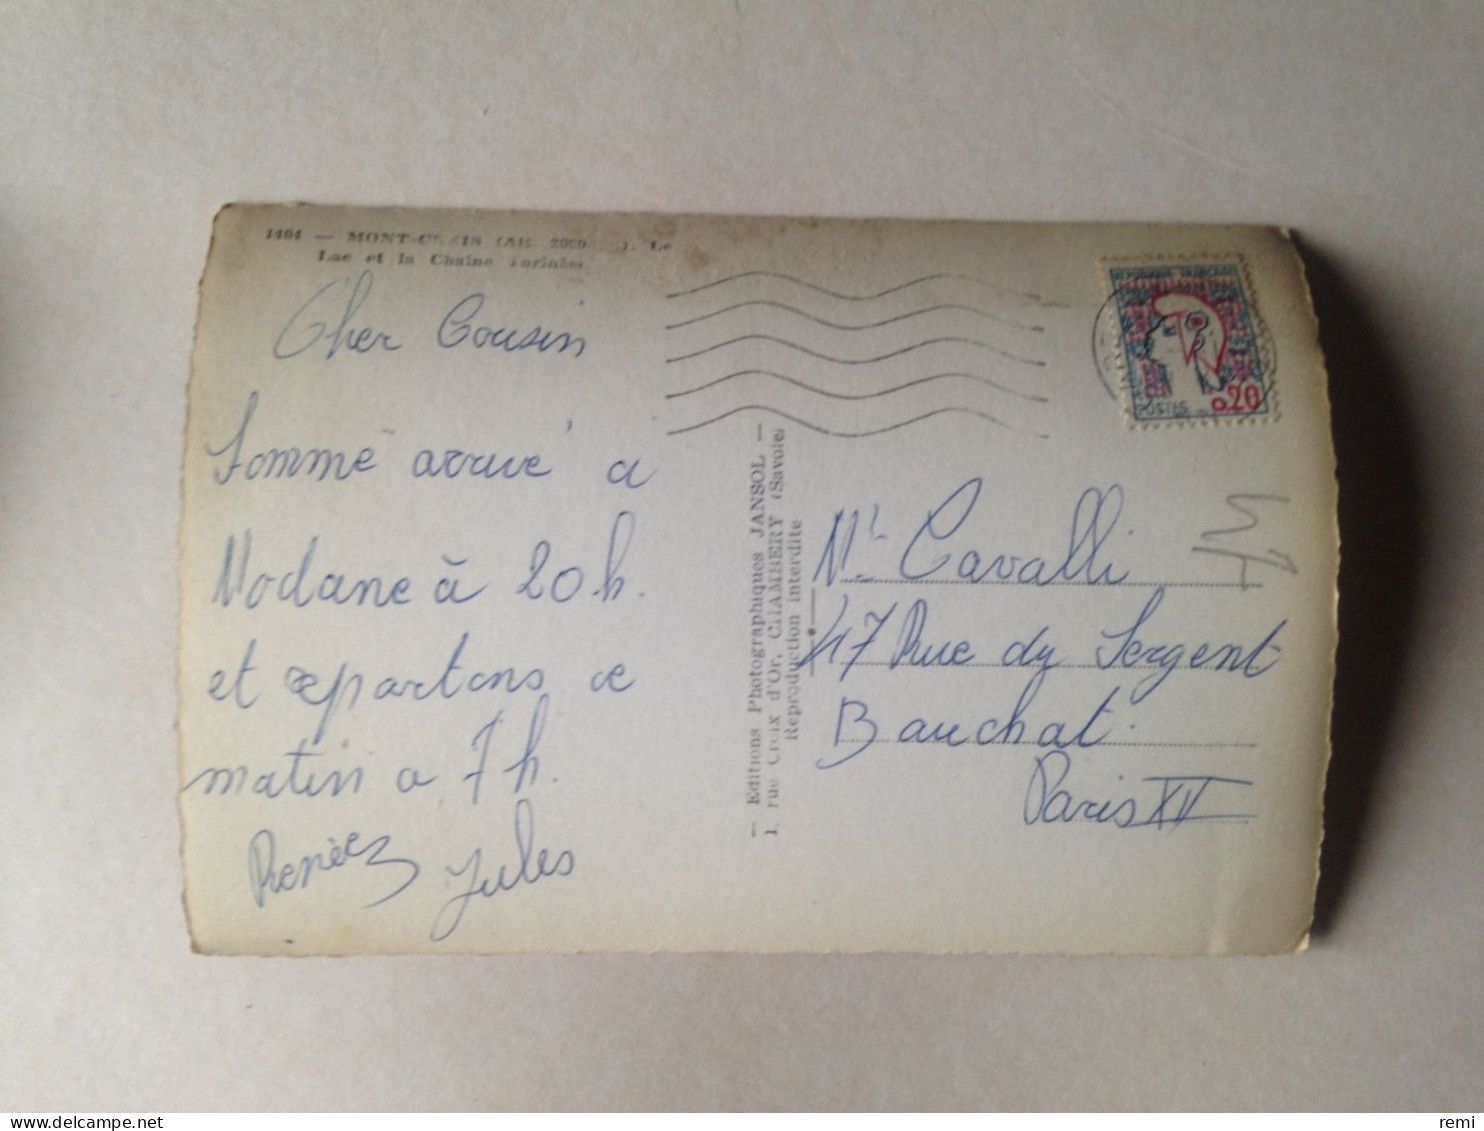 1404 — MONT-CENIS (Alt. 2000 ). Le
Lac et la Chaîne
Cher Cousin
Somme arrivé a
Modane à 20 h.
et repartons ce
matin a 7 h.
Renée
Jules
— Editions Photographiques JANSOL —
1, rue Croix d'Or, CHAMBERY (Savoie)
Reproduction interdite
REPUBLIQUE FRANÇAISE
POSTES 0,20
Mr Cavalli
47 Rue du Sergent
Bauchat.
Paris XII
remi